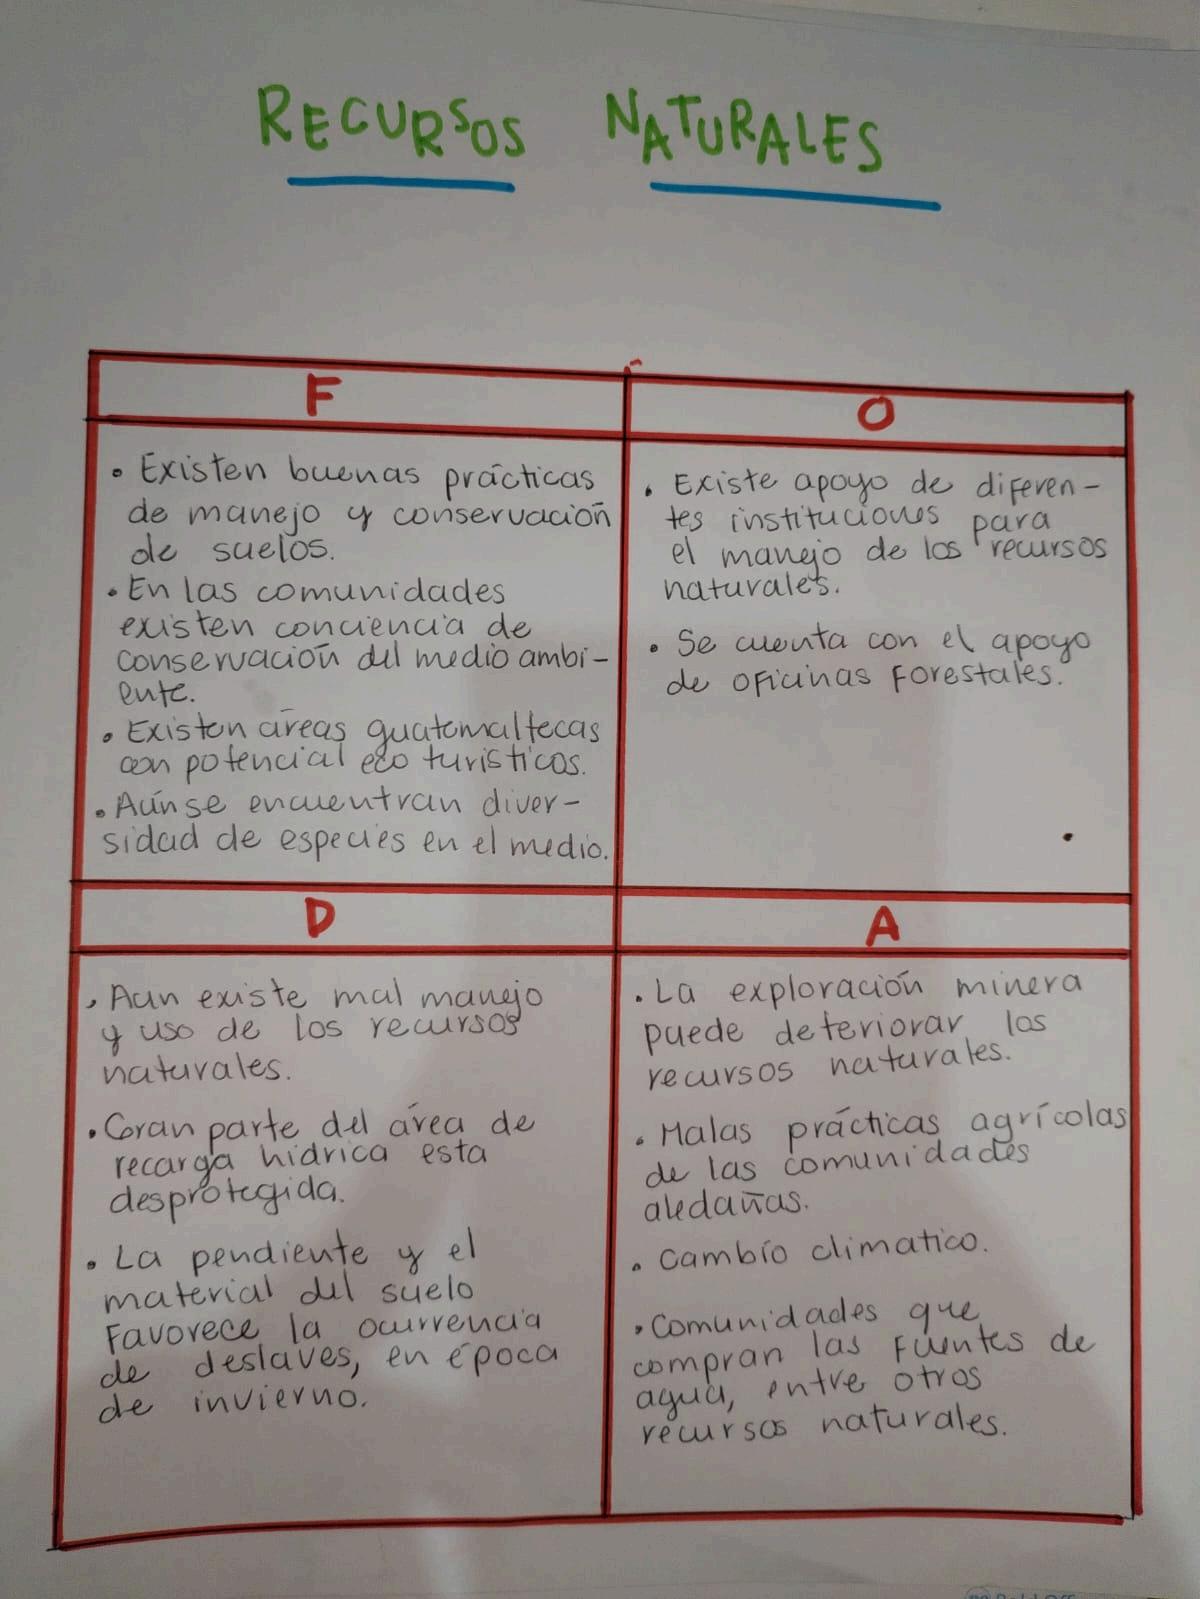 RECURSOS NATURALES
F
• Existen buenas prácticas
de manejo y conservación
de suelos.
• En las comunidades
existen conciencia de
conservación del medio ambi-
ente.
• Existen áreas guatemaltecas
con potencial eco turisticos.
• Aún se encuentran diver-
sidad de especies en el medio.
O
• Existe apoyo de diferen-
tes instituciones para
el manejo de los recursos
naturales.
• Se cuenta con el apoyo
de oficinas forestales.
D
• Aun existe mal manejo
y uso de los recursos
naturales.
• Gran parte del área de
recarga hidrica esta
desprotegida.
• La pendiente y el
material del suelo
Favorece la ocurrencia
de deslaves, en época
de invierno.
A
• La exploración minera
puede deteriorar los
recursos naturales.
• Malas prácticas agrícolas
de las comunidades
aledañas.
• Cambio climatico.
• Comunidades que
compran las fuentes de
agua, entre otros
recursos naturales.